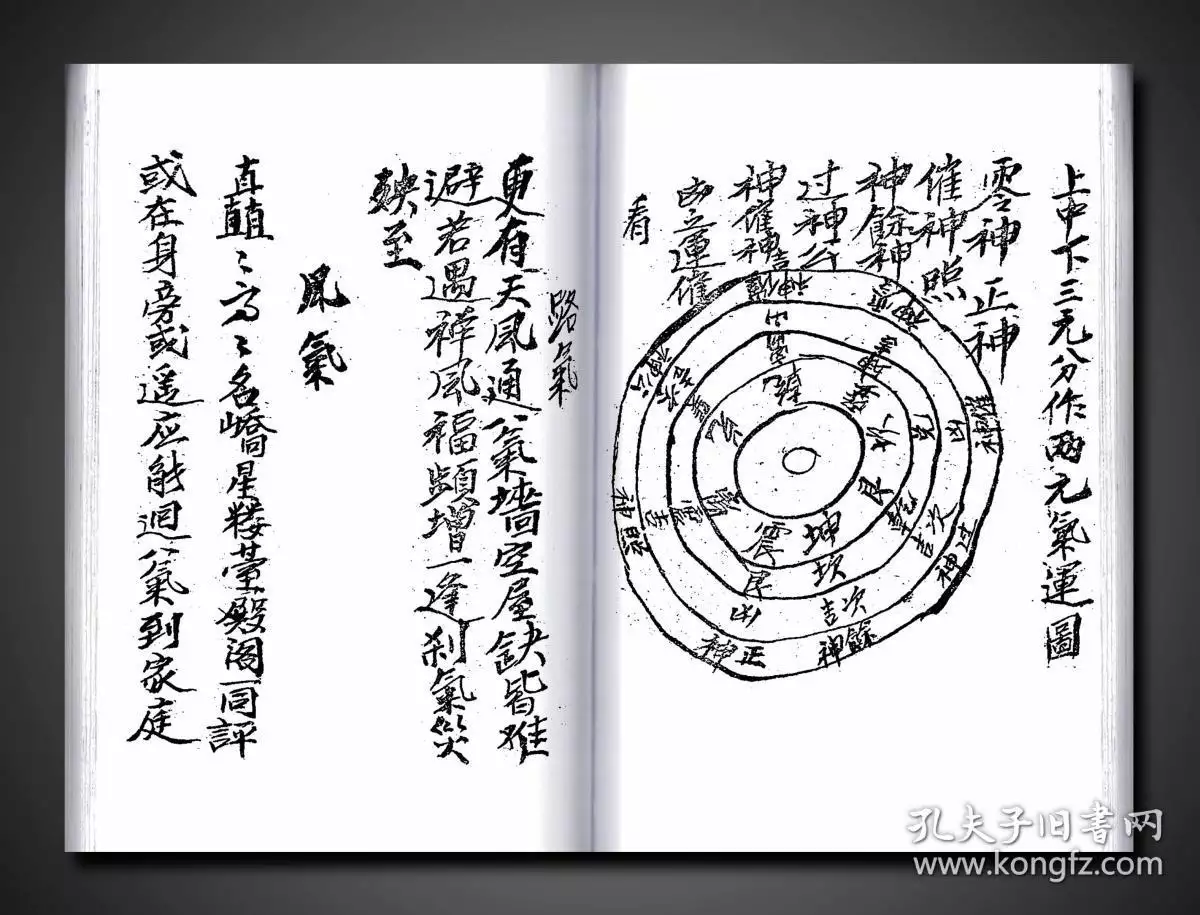 上中下三元分作兩元氣運圖
零神正神
催神照
神餘神
过神公
神催神吉
凶之運催
看
坤
震
坎
艮
次吉
凶
正神
餘神
照神
过神
路氣
更有天風通八氣墻空屋缺皆难
避若遇祥風福頻增一逢刹氣災
殃至
風氣
直矗〻高〻名嶠星楼臺殿阁一同評
或在身旁或遥应能迴八氣到家庭
孔夫子旧书网
www.kongfz.com